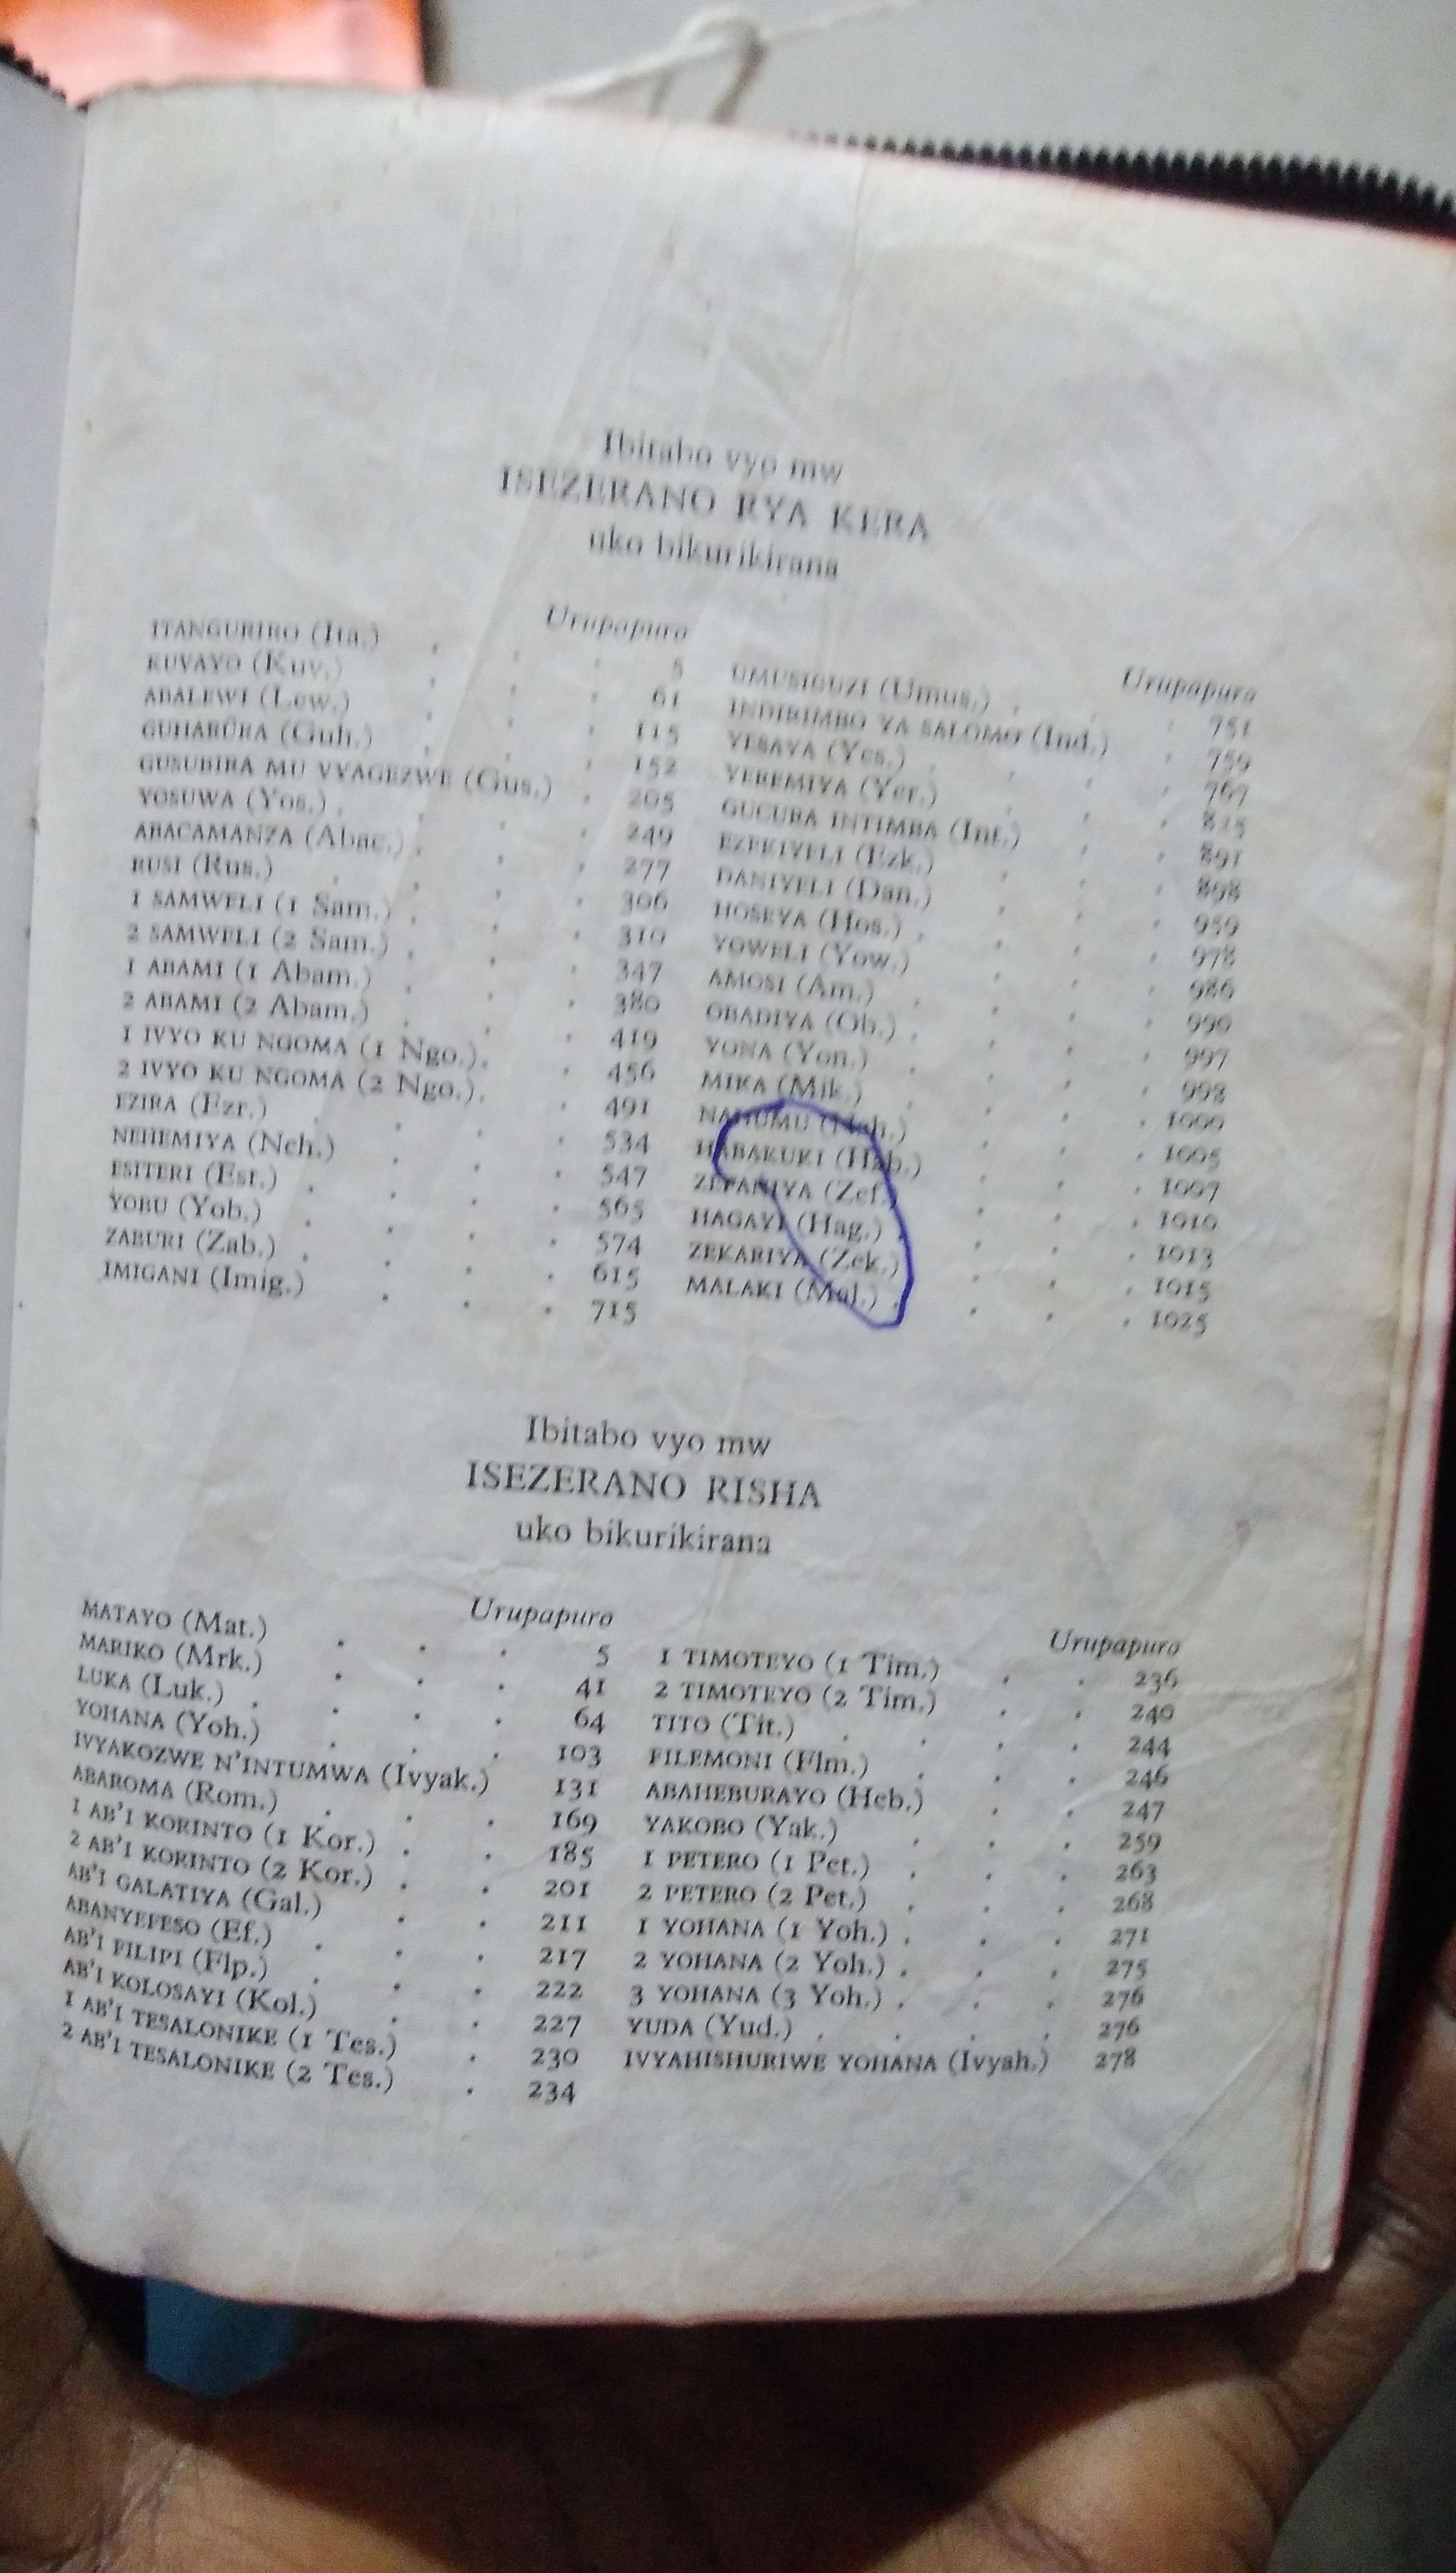 Ibitabo vyo mw
ISEZERANO RYA KERA
uko bikurikirana
Urupapuro
ITANGURIRO (Ita.) . . . 5
KUVAYO (Kuv.) . . . 61
ABALEWI (Lew.) . . . 115
GUHARŪRA (Guh.) . . . 152
GUSUBIRA MU VYAGEZWE (Gus.) . 205
YOSUWA (Yos.) . . . 249
ABACAMANZA (Abac.) . . . 277
RUSI (Rus.) . . . 306
1 SAMWELI (1 Sam.) . . . 310
2 SAMWELI (2 Sam.) . . . 347
1 ABAMI (1 Abam.) . . . 380
2 ABAMI (2 Abam.) . . . 419
1 IVYO KU NGOMA (1 Ngo.) . . 456
2 IVYO KU NGOMA (2 Ngo.) . . 491
EZIRA (Ezr.) . . . 534
NEHEMIYA (Neh.) . . . 547
ESITERI (Est.) . . . 565
YOBU (Yob.) . . . 574
ZABURI (Zab.) . . . 615
IMIGANI (Imig.) . . . 715
Urupapuro
UMUSIGUZI (Umus.) . . . 751
INDIRIMBO YA SALOMO (Ind.) . 759
YESAYA (Yes.) . . . 767
YEREMIYA (Yer.) . . . 825
GUCURA INTIMBA (Int.) . . 891
EZEKIYELI (Ezk.) . . . 898
DANIYELI (Dan.) . . . 959
HOSEYA (Hos.) . . . 978
YOWELI (Yow.) . . . 986
AMOSI (Am.) . . . 990
OBADIYA (Ob.) . . . 997
YONA (Yon.) . . . 998
MIKA (Mik.) . . . 1000
NAHUMU (Nah.) . . . 1005
HABAKUKI (Hab.) . . . 1007
ZEFANIYA (Zef.) . . . 1010
HAGAYI (Hag.) . . . 1013
ZEKARIYA (Zek.) . . . 1015
MALAKI (Mal.) . . . 1025
Ibitabo vyo mw
ISEZERANO RISHA
uko bikurikirana
Urupapuro
MATAYO (Mat.) . . . 5
MARIKO (Mrk.) . . . 41
LUKA (Luk.) . . . . 64
YOHANA (Yoh.) . . . 103
IVYAKOZWE N'INTUMWA (Ivyak.) 131
ABAROMA (Rom.) . . . 169
1 AB'I KORINTO (1 Kor.) . . 185
2 AB'I KORINTO (2 Kor.) . . 201
AB'I GALATIYA (Gal.) . . 211
ABANYEFESO (Ef.) . . . 217
AB'I FILIPI (Flp.) . . . 222
AB'I KOLOSAYI (Kol.) . . 227
1 AB'I TESALONIKE (1 Tes.) . 230
2 AB'I TESALONIKE (2 Tes.) . 234
Urupapuro
1 TIMOTEYO (1 Tim.) . . 236
2 TIMOTEYO (2 Tim.) . . 240
TITO (Tit.) . . . . 244
FILEMONI (Flm.) . . . 246
ABAHEBURAYO (Heb.) . . 247
YAKOBO (Yak.) . . . 259
1 PETERO (1 Pet.) . . . 263
2 PETERO (2 Pet.) . . . 268
1 YOHANA (1 Yoh.) . . . 271
2 YOHANA (2 Yoh.) . . . 275
3 YOHANA (3 Yoh.) . . . 276
YUDA (Yud.) . . . . 276
IVYAHISHURIWE YOHANA (Ivyah.) 278